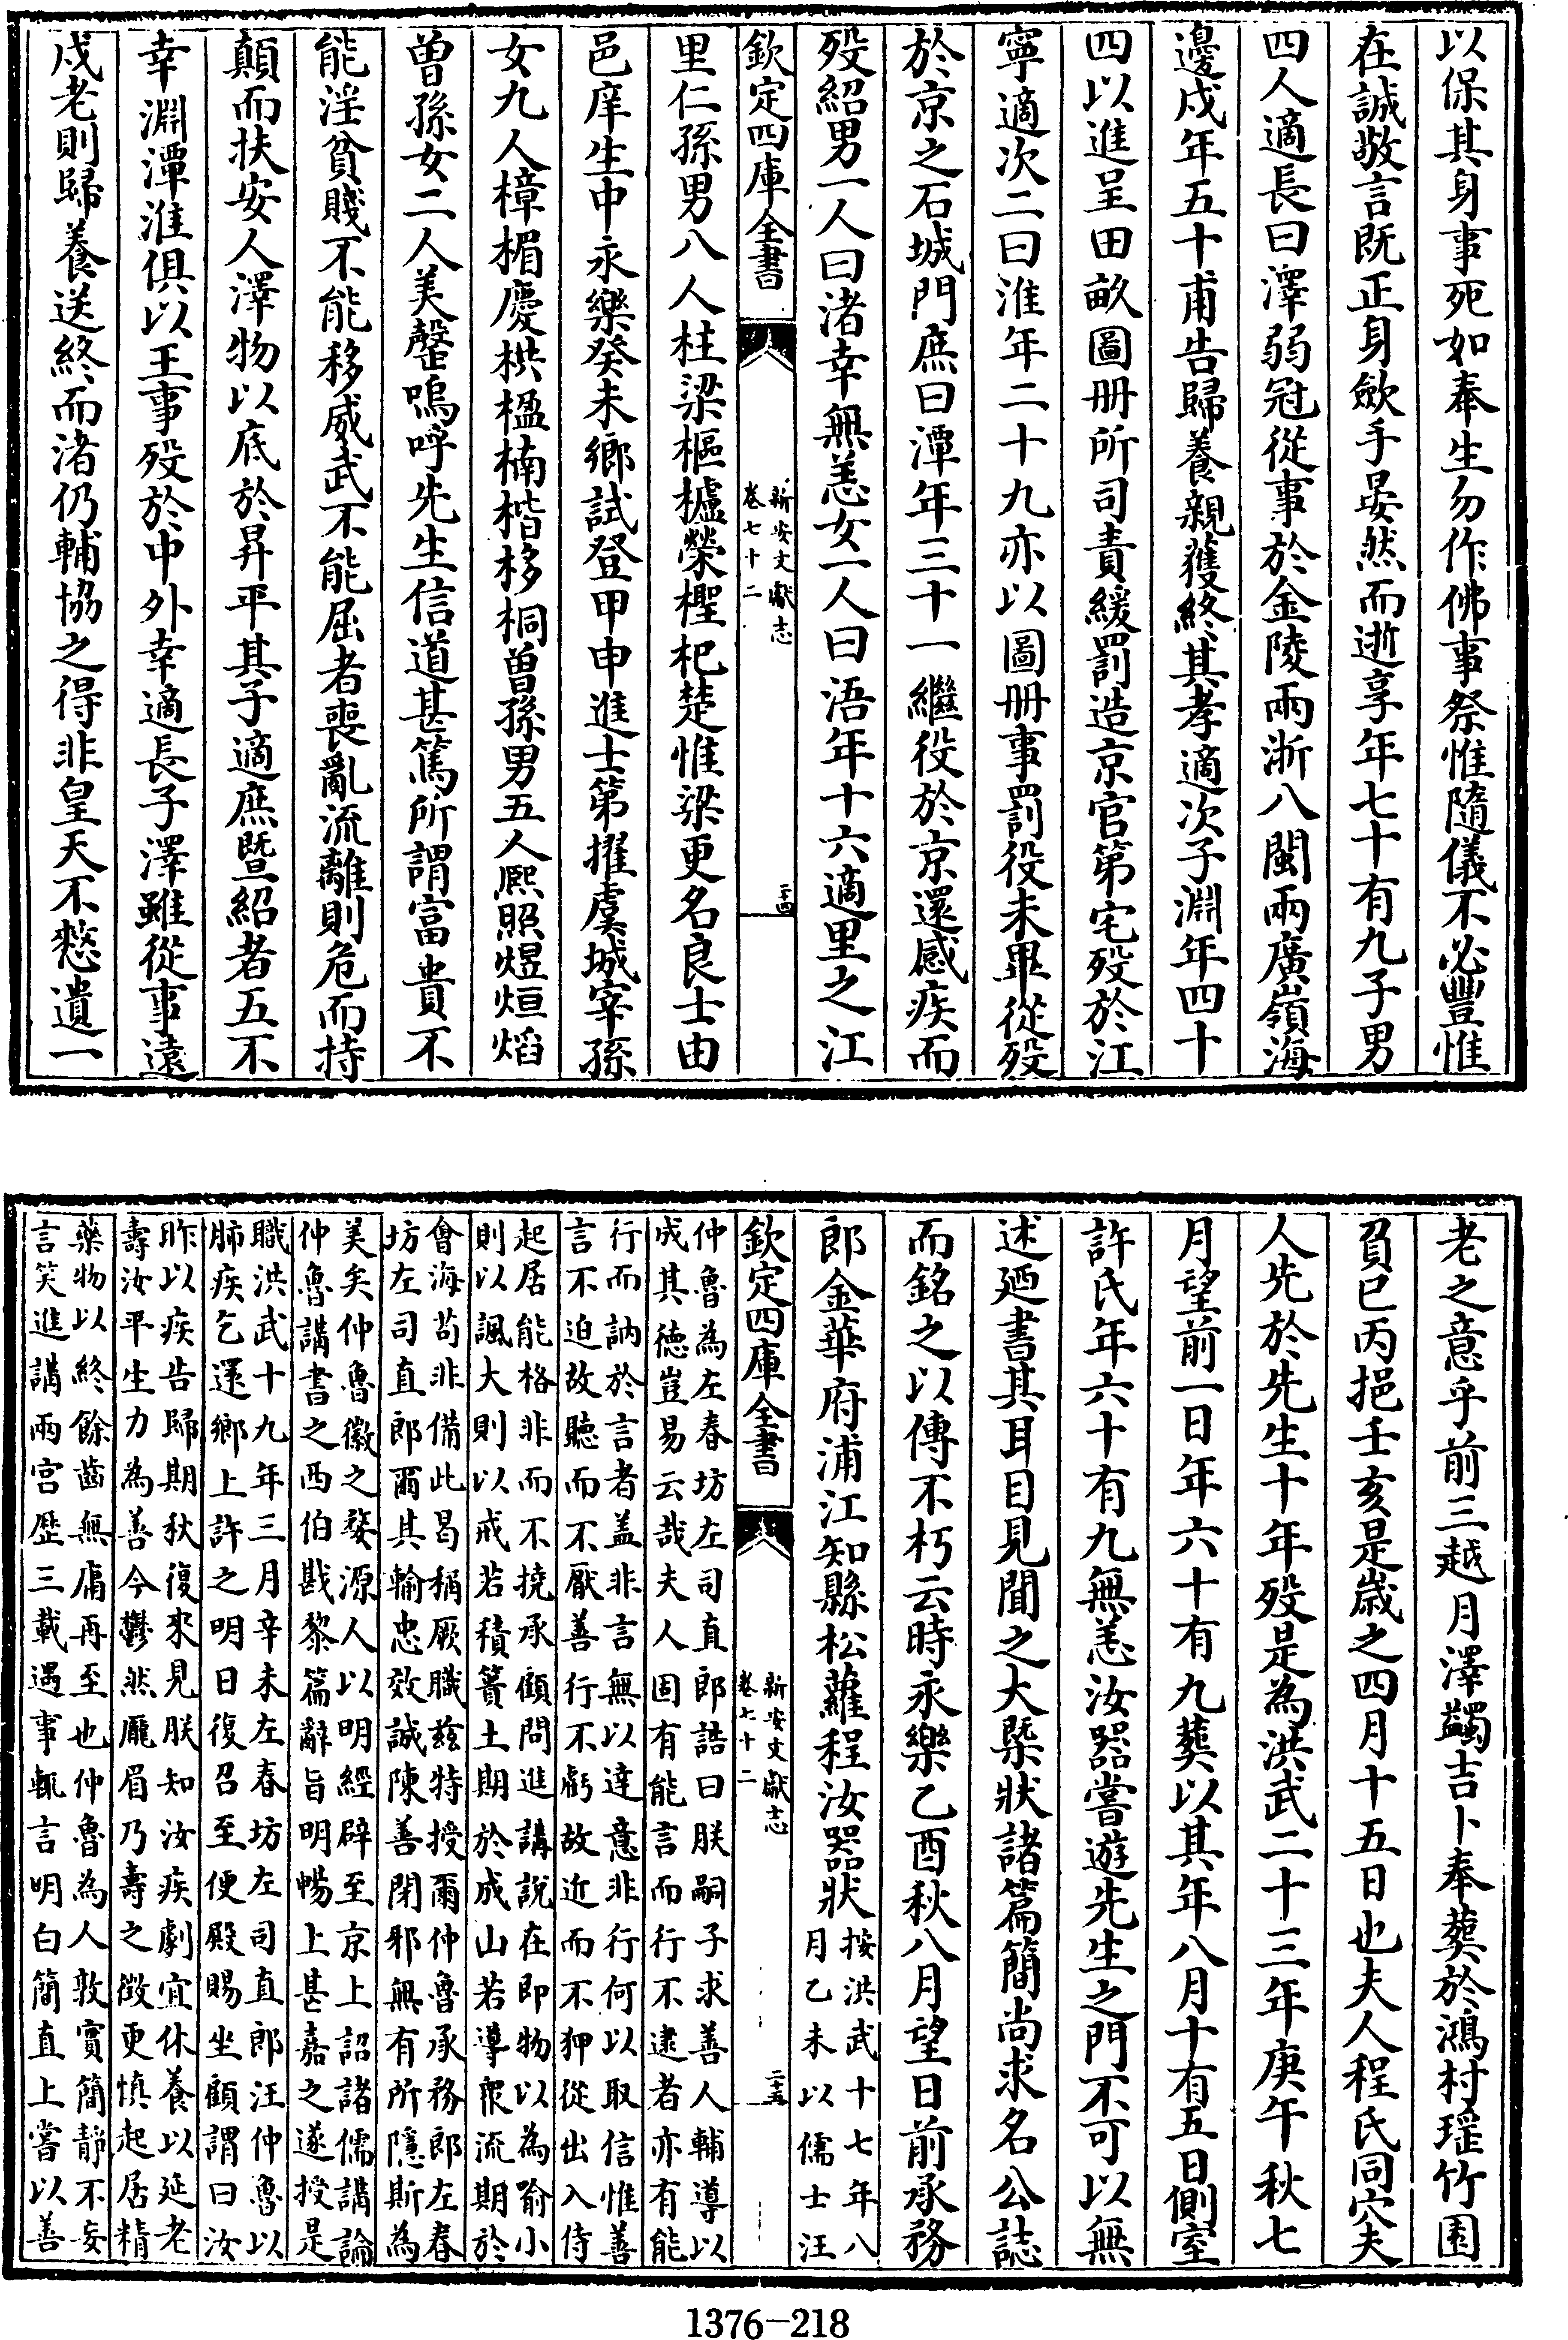 以保其身事死如奉生勿作佛事祭惟隨儀不必豐惟
在誠敬言既正身斂手晏然而逝享年七十有九子男
四人適長曰澤弱冠從事於金陵兩浙八閩兩廣嶺海
邊戍年五十甫告歸養親獲終其孝適次子淵年四十
四以進呈田畝圖册所司責緩罰造京官第宅殁於江
寧適次二曰淮年二十九亦以圖册事罰役未畢從殁
於京之石城門庶曰潭年三十一繼役於京還感疾而
殁紹男一人曰渚幸無恙女一人曰浯年十六適里之江
欽定四庫全書
新安文獻志
卷七十二
二十四
里仁孫男八人柱梁樞櫨榮檉杞楚惟梁更名良士由
邑庠生中永樂癸未鄉試登甲申進士第擢虞城宰孫
女九人樟楣慶栱楹楠楷栘桐曾孫男五人熙照煜烜熖
曾孫女二人美罄嗚呼先生信道甚篤所謂富貴不
能淫貧賤不能移威武不能屈者喪亂流離則危而持
顛而扶安人澤物以底於昇平其子適庶暨紹者五不
幸淵潭淮俱以王事殁於中外幸適長子澤雖從事遠
戍老則歸養送終而渚仍輔協之得非皇天不憗遺一
老之意乎前三越月澤蠲吉卜奉葬於鴻村瑶竹園
負巳丙挹壬亥是歲之四月十五日也夫人程氏同穴夫
人先於先生十年殁是為洪武二十三年庚午秋七
月望前一日年六十有九葬以其年八月十有五日側室
許氏年六十有九無恙汝器嘗遊先生之門不可以無
述廼書其耳目見聞之大槩狀諸篇簡尚求名公誌
而銘之以傳不朽云時永樂乙酉秋八月望日前承務
郎金華府浦江知縣松蘿程汝器狀
按洪武十七年八
月乙未以儒士汪
欽定四庫全書
新安文獻志
卷七十二
二十五
仲魯為左春坊左司直郎誥曰朕嗣子求善人輔導以
成其德豈易云哉夫人固有能言而行不逮者亦有能
行而訥於言者盖非言無以達意非行何以取信惟善
言不迫故聽而不厭善行不虧故近而不狎從出入侍
起居能格非而不撓承顧問進講說在即物以為喻小
則以諷大則以戒若積簣土期於成山若導衆流期於
會海苟非備此曷稱厥職兹特授爾仲魯承務郎左春
坊左司直郎爾其輸忠效誠陳善閉邪無有所隱斯為
美矣仲魯徽之婺源人以明經辟至京上詔諸儒講論
仲魯講書之西伯戡黎篇辭旨明暢上甚嘉之遂授是
職洪武十九年三月辛未左春坊左司直郎汪仲魯以
肺疾乞還鄉上許之明日復召至便殿賜坐顧謂曰汝
昨以疾告歸期秋復來見朕知汝疾劇宜休養以延老
壽汝平生力為善今鬱然龎眉乃壽之徵更慎起居精
藥物以終餘齒無庸再至也仲魯為人敦實簡靜不妄
言笑進講兩宫歷三載遇事輒言明白簡直上嘗以善
1376-218